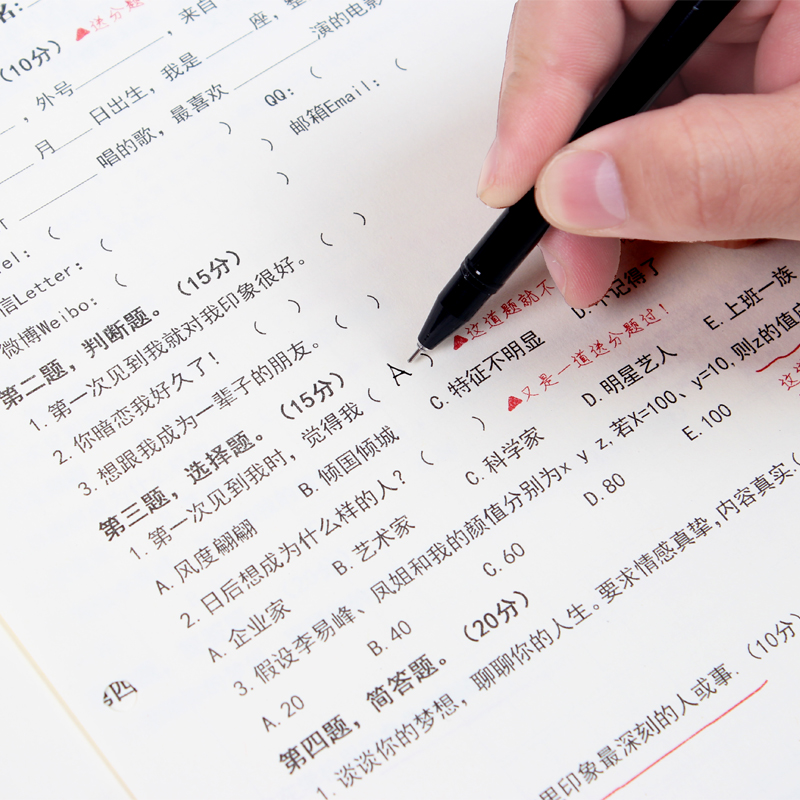 名：
▲送分题
（10分）
，外号 ，来自 座，整
月 日出生，我是 演的电影
唱的歌，最喜欢
QQ：（ ）
邮箱Email：（ ）
（ ）
信Letter：（ ）
微博Weibo：（ ）
第二题，判断题。（15分）
1. 第一次见到我就对我印象很好。（ ）
2. 你暗恋我好久了！（ ）
3. 想跟我成为一辈子的朋友。（ ）
第三题，选择题。（15分）
▲这道题就不
1. 第一次见到我时，觉得我（ A ）
A. 风度翩翩 B. 倾国倾城 C. 特征不明显 D. 不记得了
▲又是一道送分题过！
2. 日后想成为什么样的人？（ ）
A. 企业家 B. 艺术家 C. 科学家 D. 明星艺人 E. 上班一族
3. 假设李易峰、凤姐和我的颜值分别为x y z, 若X=100、y=10, 则z的值
这
A. 20 B. 40 C. 60 D. 80 E. 100
第四题，简答题。（20分）
1. 谈谈你的梦想，聊聊你的人生。要求情感真挚，内容真实.（
印象最深刻的人或事.（10分）
四